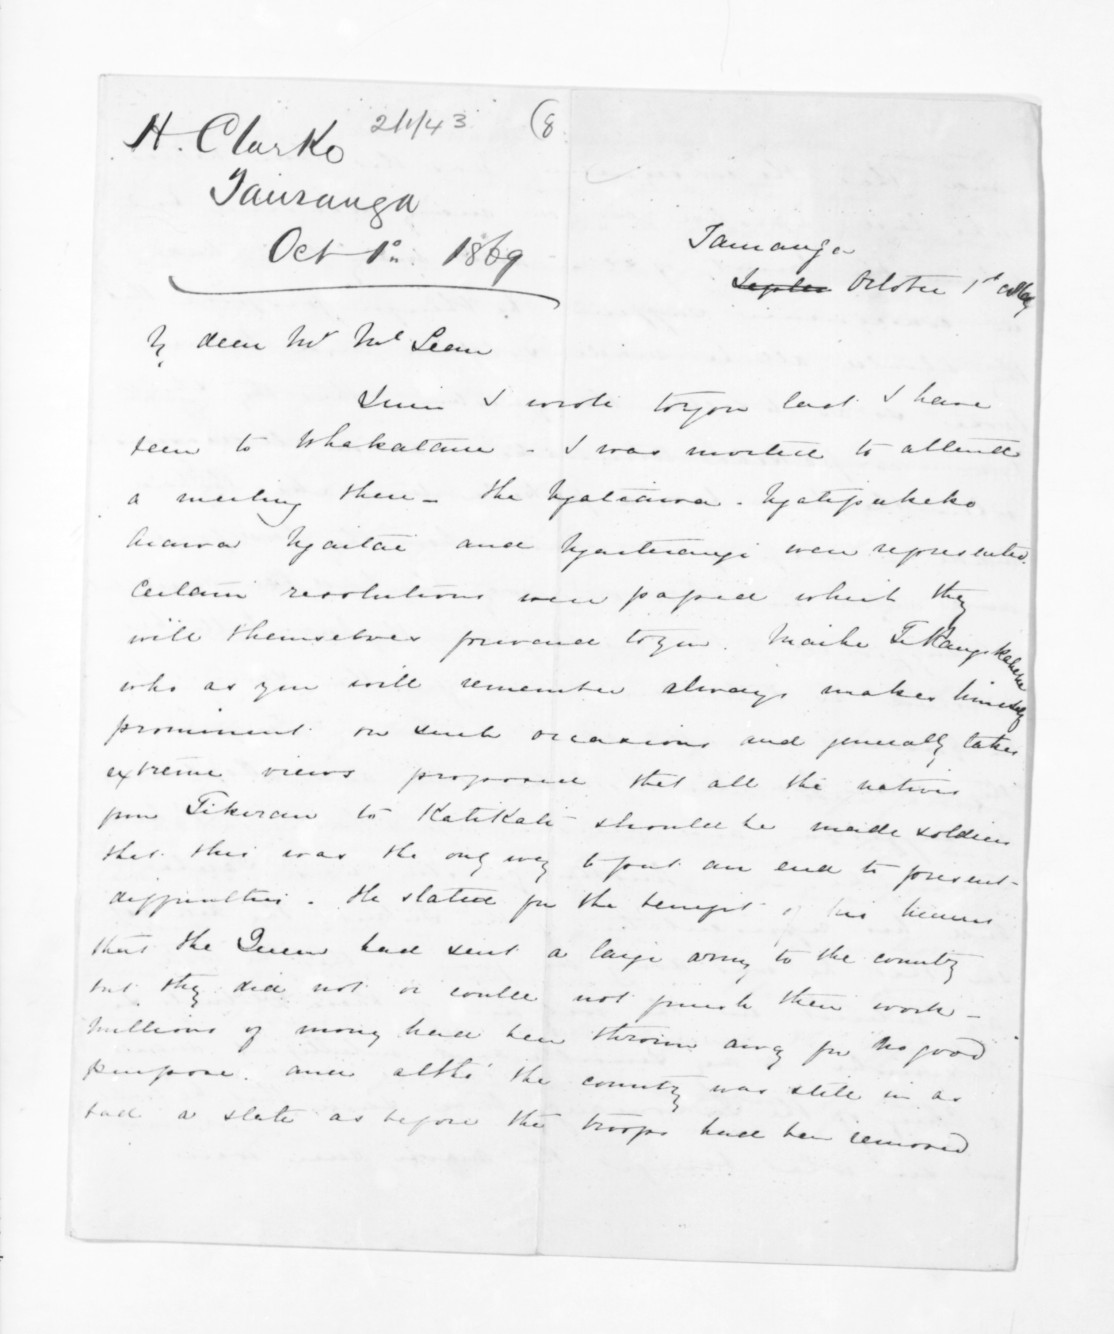 H. Clarke
2/1/43
(8
Tauranga
Oct 1st 1869
Tauranga
Septber October 1st 1869
My dear Mr McLean
Since I wrote to you last I have
been to Whakatane - I was invited to attend
a meeting there - the Ngatiawa. Ngatipukeko
Arawa Ngaitai and Ngaiterangi were represented.
Certain resolutions were passed which they
will themselves forward to you. Maihi Te Rangikaheke
who as you will remember always makes himself
prominent on such occasions and generally takes
extreme views proposed that all the natives
from Tikirau to Katikati should be made soldiers
that this was the only way to put an end to present
difficulties. He stated for the benefit of his hearers
that the Queen had sent a large army to the country
but they did not or could not finish their work -
millions of money had been thrown away for no good
purpose. and altho' the country was still in as
bad a state as before the troops had been removed